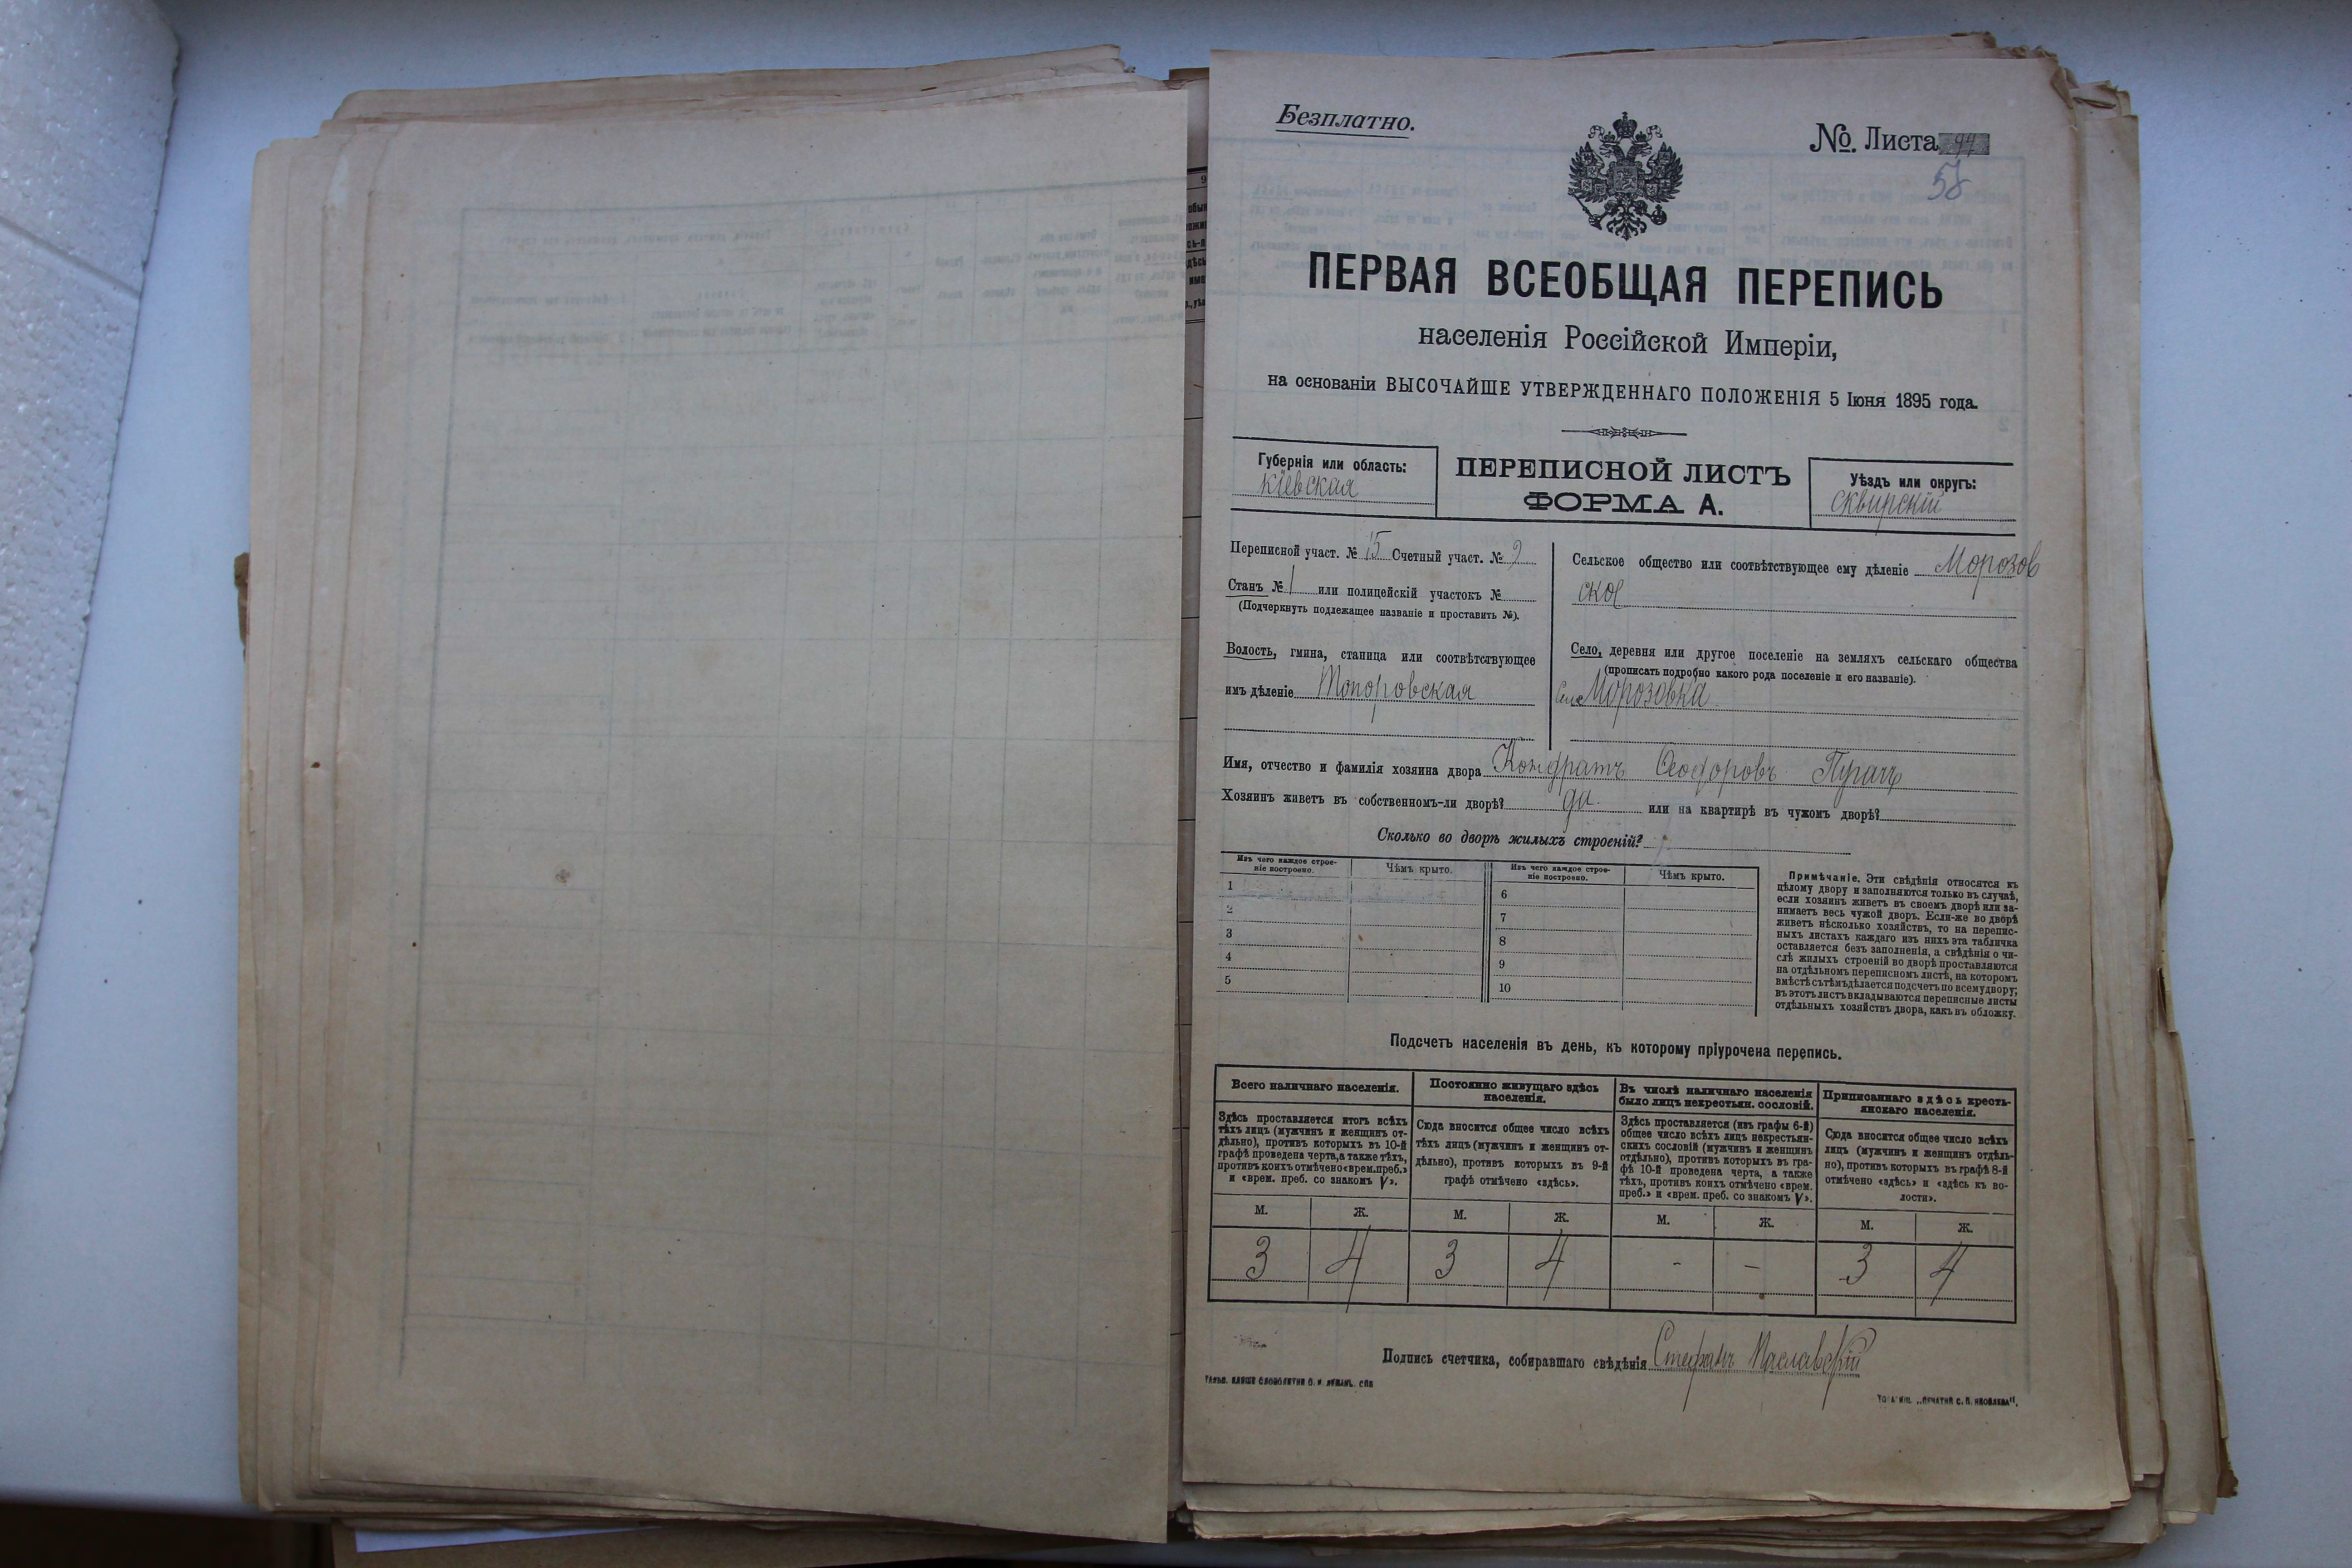 Безплатно.
№. Листа 94
58
ПЕРВАЯ ВСЕОБЩАЯ ПЕРЕПИСЬ
населенія Россійской Имперіи,
на основаніи ВЫСОЧАЙШЕ УТВЕРЖДЕННАГО ПОЛОЖЕНІЯ 5 Іюня 1895 года.
Губернія или область:
Кіевская
ПЕРЕПИСНОЙ ЛИСТЪ
ФОРМА А.
Уѣздъ или округъ:
Сквирскій
Переписной участ. № 15 Счетный участ. № 9
Станъ № 1 или полицейскій участокъ №
(Подчеркнуть подлежащее названіе и проставить №).
Волость, гмина, станица или соотвѣтствующее
имъ дѣленіе Топоровская
Сельское общество или соотвѣтствующее ему дѣленіе Морозов
ское
Село, деревня или другое поселеніе на земляхъ сельскаго общества
(прописать подробно какого рода поселеніе и его названіе).
Село Морозовка
Имя, отчество и фамилія хозяина двора Кондратъ Ѳеодоровъ Пугачъ
Хозяинъ живетъ въ собственномъ-ли дворѣ? да. или на квартирѣ въ чужомъ дворѣ?
Сколько во дворѣ жилыхъ строеній?
Изъ чего каждое строе-
ніе построено.
Чѣмъ крыто.
Изъ чего каждое строе-
ніе построено.
Чѣмъ крыто.
1
2
3
4
5
6
7
8
9
10
Примѣчаніе. Эти свѣдѣнія относятся къ
цѣлому двору и заполняются только въ случаѣ,
если хозяинъ живетъ въ своемъ дворѣ или за-
нимаетъ весь чужой дворъ. Если-же во дворѣ
живетъ нѣсколько хозяйствъ, то на перепис-
ныхъ листахъ каждаго изъ нихъ эта табличка
оставляется безъ заполненія, а свѣдѣнія о чи-
слѣ жилыхъ строеній во дворѣ проставляются
на отдѣльномъ переписномъ листѣ, на которомъ
вмѣстѣ съ тѣмъ дѣлается подсчетъ по всему двору;
въ этотъ листъ вкладываются переписные листы
отдѣльныхъ хозяйствъ двора, какъ въ обложку.
Подсчетъ населенія въ день, къ которому пріурочена перепись.
Всего наличнаго населенія.
Здѣсь проставляется итогъ всѣхъ
тѣхъ лицъ (мужчинъ и женщинъ от-
дѣльно), противъ которыхъ въ 10-й
графѣ проведена черта, а также тѣхъ,
противъ коихъ отмѣчено «врем. преб.»
и «врем. преб. со знакомъ V».
Постоянно живущаго здѣсь
населенія.
Сюда вносится общее число всѣхъ
тѣхъ лицъ (мужчинъ и женщинъ от-
дѣльно), противъ которыхъ въ 9-й
графѣ отмѣчено «здѣсь».
Въ числѣ наличнаго населенія
было лицъ некрестьян. сословій.
Здѣсь проставляется (изъ графы 6-й)
общее число всѣхъ лицъ некрестьян-
скихъ сословій (мужчинъ и женщинъ
отдѣльно), противъ которыхъ въ гра-
фѣ 10-й проведена черта, а также
тѣхъ, противъ коихъ отмѣчено «врем.
преб.» и «врем. преб. со знакомъ V».
Приписаннаго здѣсь кресть-
янскаго населенія.
Сюда вносится общее число всѣхъ
лицъ (мужчинъ и женщинъ отдѣль-
но), противъ которыхъ въ графѣ 8-й
отмѣчено «здѣсь» и «здѣсь къ во-
лости».
М. Ж. М. Ж. М. Ж. М. Ж.
3 4 3 4 - - 3 4
Подпись счетчика, собиравшаго свѣдѣнія Стефанъ Маславскій